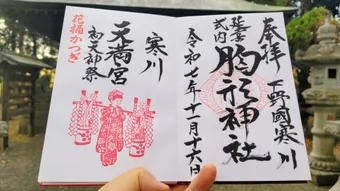 奉拝
下野國寒川
延喜
式内
胸形神社
令和七年十一月十六日
寒川
天満宮
初天神祭
花桶かつぎ